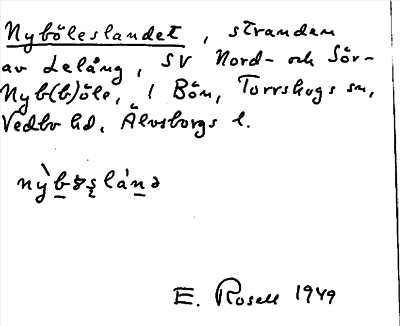 Nyböleslandet, stranden
av Lelång, SV Nord- och Sör-
Nyb(b)öle, i Bön, Torrskogs sn,
Vedbo hd, Älvsborgs l.
nỳbɞs̨lánə
E. Rosell 1949